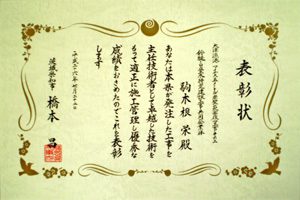 表彰状
駒木根 栄殿
あなたは本県が発注した工事を
主任技術者として卓越した技術を
もって適正に施工管理し優秀な
成績をおさめたのでこれを表彰
します
平成二十六年七月二十二日
茨城県知事
橋本 昌